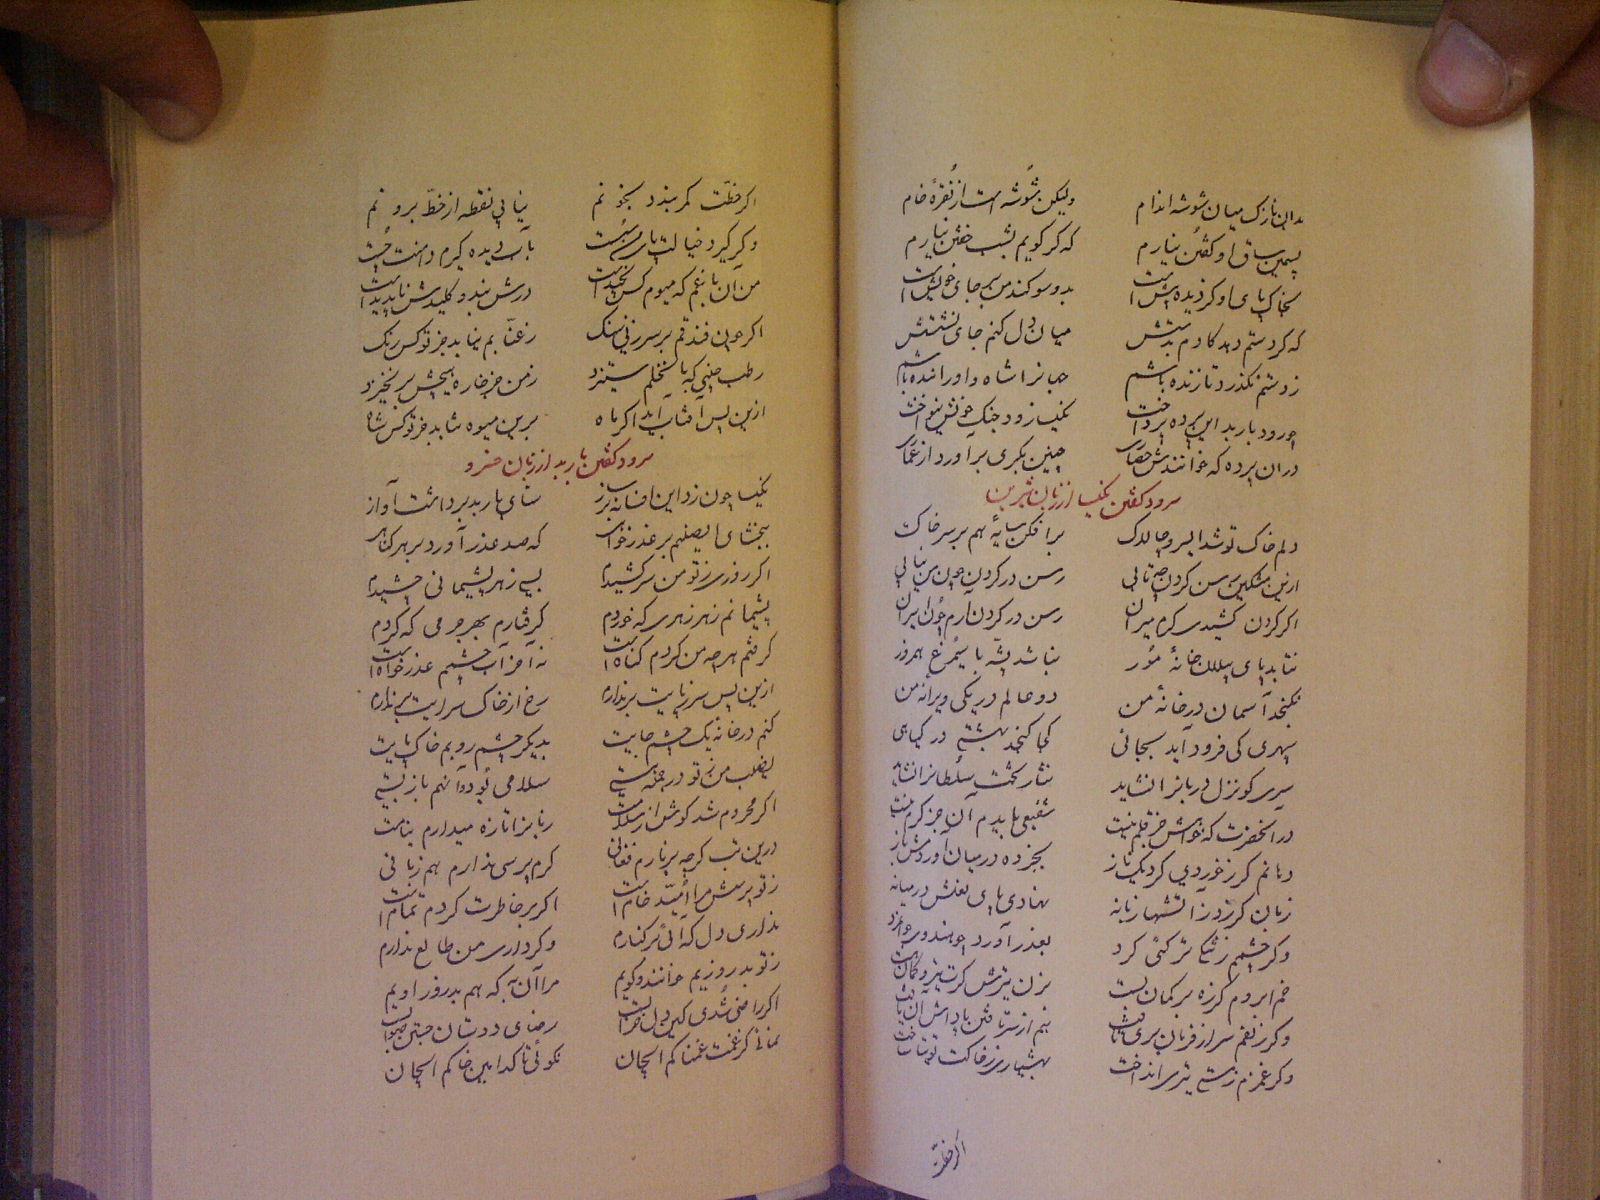 بدان نازک میان شوشه اندام ولیکن شوشه است از نقره خام
بسیمین ساق او گفتن نیارم که گر گویم بشب خفتن نیارم
بخاک پای او کز دیده پیش است بدو سوکند من بر جای خویش است
که گر دستم دهد کارم بدستش میان دل کنم جای نشستش
ز دستم نگذرد تا زنده باشم جهانرا شاه و او را بنده باشم
چو رود باربد این پرده پرداخت نکیسا زود چنگ خویش بنواخت
در ان پرده که خوانندش حصاری چنین بکری بر آورد از عماری
سرود گفتن نکیسا از زبان شیرین
دلم خاک تو شد ای سرو چالاک بر افکن سایهٔ هم بر سر خاک
ازین مشکین رسن گردن چه تابی رسن در گردن چون من نیابی
اگر گردن کشیدی کرم میران رسن در گردن آرم چون اسیران
نتابد پای پیلان خانهٔ مور نباشد پشه با سیمرغ همزور
نگنجد آسمان در خانهٔ من دو عالم در یکی ویرانهٔ من
سپهری کی فرود آید بجائی کجا گنجد بهشتی در گیاهی
سری کو نزل دربانرا نشاید نثار تخت سلطانرا نشاید
در انحضرت که خواهش جز قلم نیست شفیعی بایدم آن جز کرم نیست
دهانم گر ز خوردی کرد یک ناز بخرده در میان آوردمش باز
زبان گر زد ز آتشها زبانه نهادی پای لعلش در میانه
وگر چشمم ز ترکی تنگئی کرد بعذر آورد چو هندوی جوانمرد
خم ابروم گر زه بر کمان بست بزن تیرش گرت تیر و کمان هست
وگر زلفم سر از فرمان بری تافت هم از سر تافتن پاداش آن یافت
وگر غمزم ز مستی تیری انداخت بهشیاری ز خاکت توتیا ساخت
اگر خطت
اگر خطت کمر بندد بخونم نیابی نقطه از خط برونم
وگر گیرد خیالت پای من سست بآب دیده گیرم دامنت چست
من آن باغم که میوم کس نچیدست درش بند و کلیدش ناپدید است
اگر چون فندقم بر سر زنی سنگ ز عنابم نیابد جز تو کس رنگ
رطب چینی که با نخلم ستیزد ز من جز خار هیچش بر نخیزد
ازین پس آفتاب آید اگر ماه برین میوه نیابد جز تو کس راه
سرود گفتن باربد از زبان خسرو
نکیسا چون زد این افسانه بر ساز ستای باربد برداشت آواز
ببخشای ای صنم بر عذر خواهی که صد عذر آورد بر هر گناهی
اگر روزی ز تو من سر کشیدم بسی زهر پشیمانی چشیدم
پشیمانم ز هر زهری که خوردم گرفتارم بهر جرمی که کردم
گرفتم هر چه من کردم گناه است نه آخر آب چشمم عذر خواه است
ازین پس سر ز پایت بر ندارم رخ از خاک سرایت بر ندارم
کنم در خانه یک چشم جایت بدیگر چشم روبم خاک پایت
بصلب من ز تو در جمله هستی سلامی بود وآنهم باز بستی
اگر محروم شد گوش از سلامت زبانرا تازه میدارم بنامت
درین تب گر چه بر نارم فغانی گرم پرسی ندارم هم زبانی
ز تو پرسش مرا امید خام است اگر بر خاطرت گردم تمام است
نداری دل که آئی بر کنارم وگر داری من طالع ندارم
ز تو بد روزیم خوانند و گویم مرا آن به که هم بد روز اویم
اگر راضی شدی کین دل خرابست رضای دوستان جستن صوابست
نمانم گر غمت غمناکم ای جان نکوئی تا کدامین خاکم ای جان